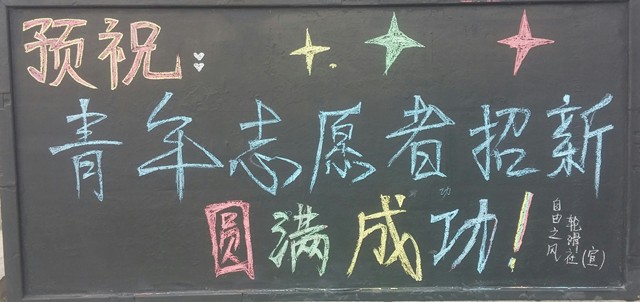 预祝:
青年志愿者招新
圆满成功!
自由之风
轮滑社(宣)